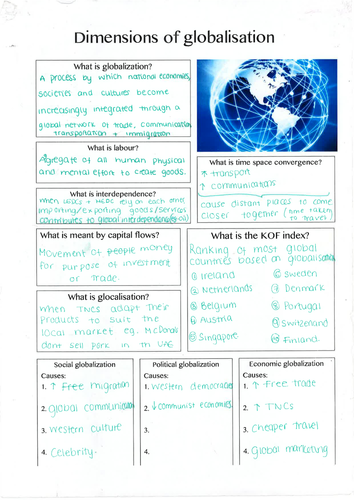 Dimensions of globalisation
What is globalization?
A process by which national economies,
societies and cultures become
increasingly integrated through a
global network of trade, communication
transportation + immigration
What is labour?
Agregate of all human physical
and mental effort to create goods.
What is interdependence?
when LEDCs + MEDCs rely on each other
importing/exporting goods/services
contributes to global interdependence
What is time space convergence?
↑ transport
↑ communications
cause distant places to come
closer together (time taken
to travel)
What is meant by capital flows?
Movement of people money
for purpose of investment
or trade.
What is glocalisation?
when TNCs adapt their
products to suit the
local market eg. McDonalds
dont sell pork in UAE
What is the KOF index?
Ranking of most global
countries based on globalisation
① Ireland
② Netherlands
③ Belgium
④ Austria
⑤ Singapore
⑥ Sweden
⑦ Denmark
⑧ Portugal
⑨ Switzerland
⑩ Finland
Social globalization
Causes:
1. ↑ Free migration
2. global communication
3. western culture
4. Celebrity.
Political globalization
Causes:
1. western democracies
2. ↓ communist economies
3.
4.
Economic globalization
Causes:
1. ↑ Free trade
2. ↑ TNCs
3. Cheaper travel
4. Global marketing